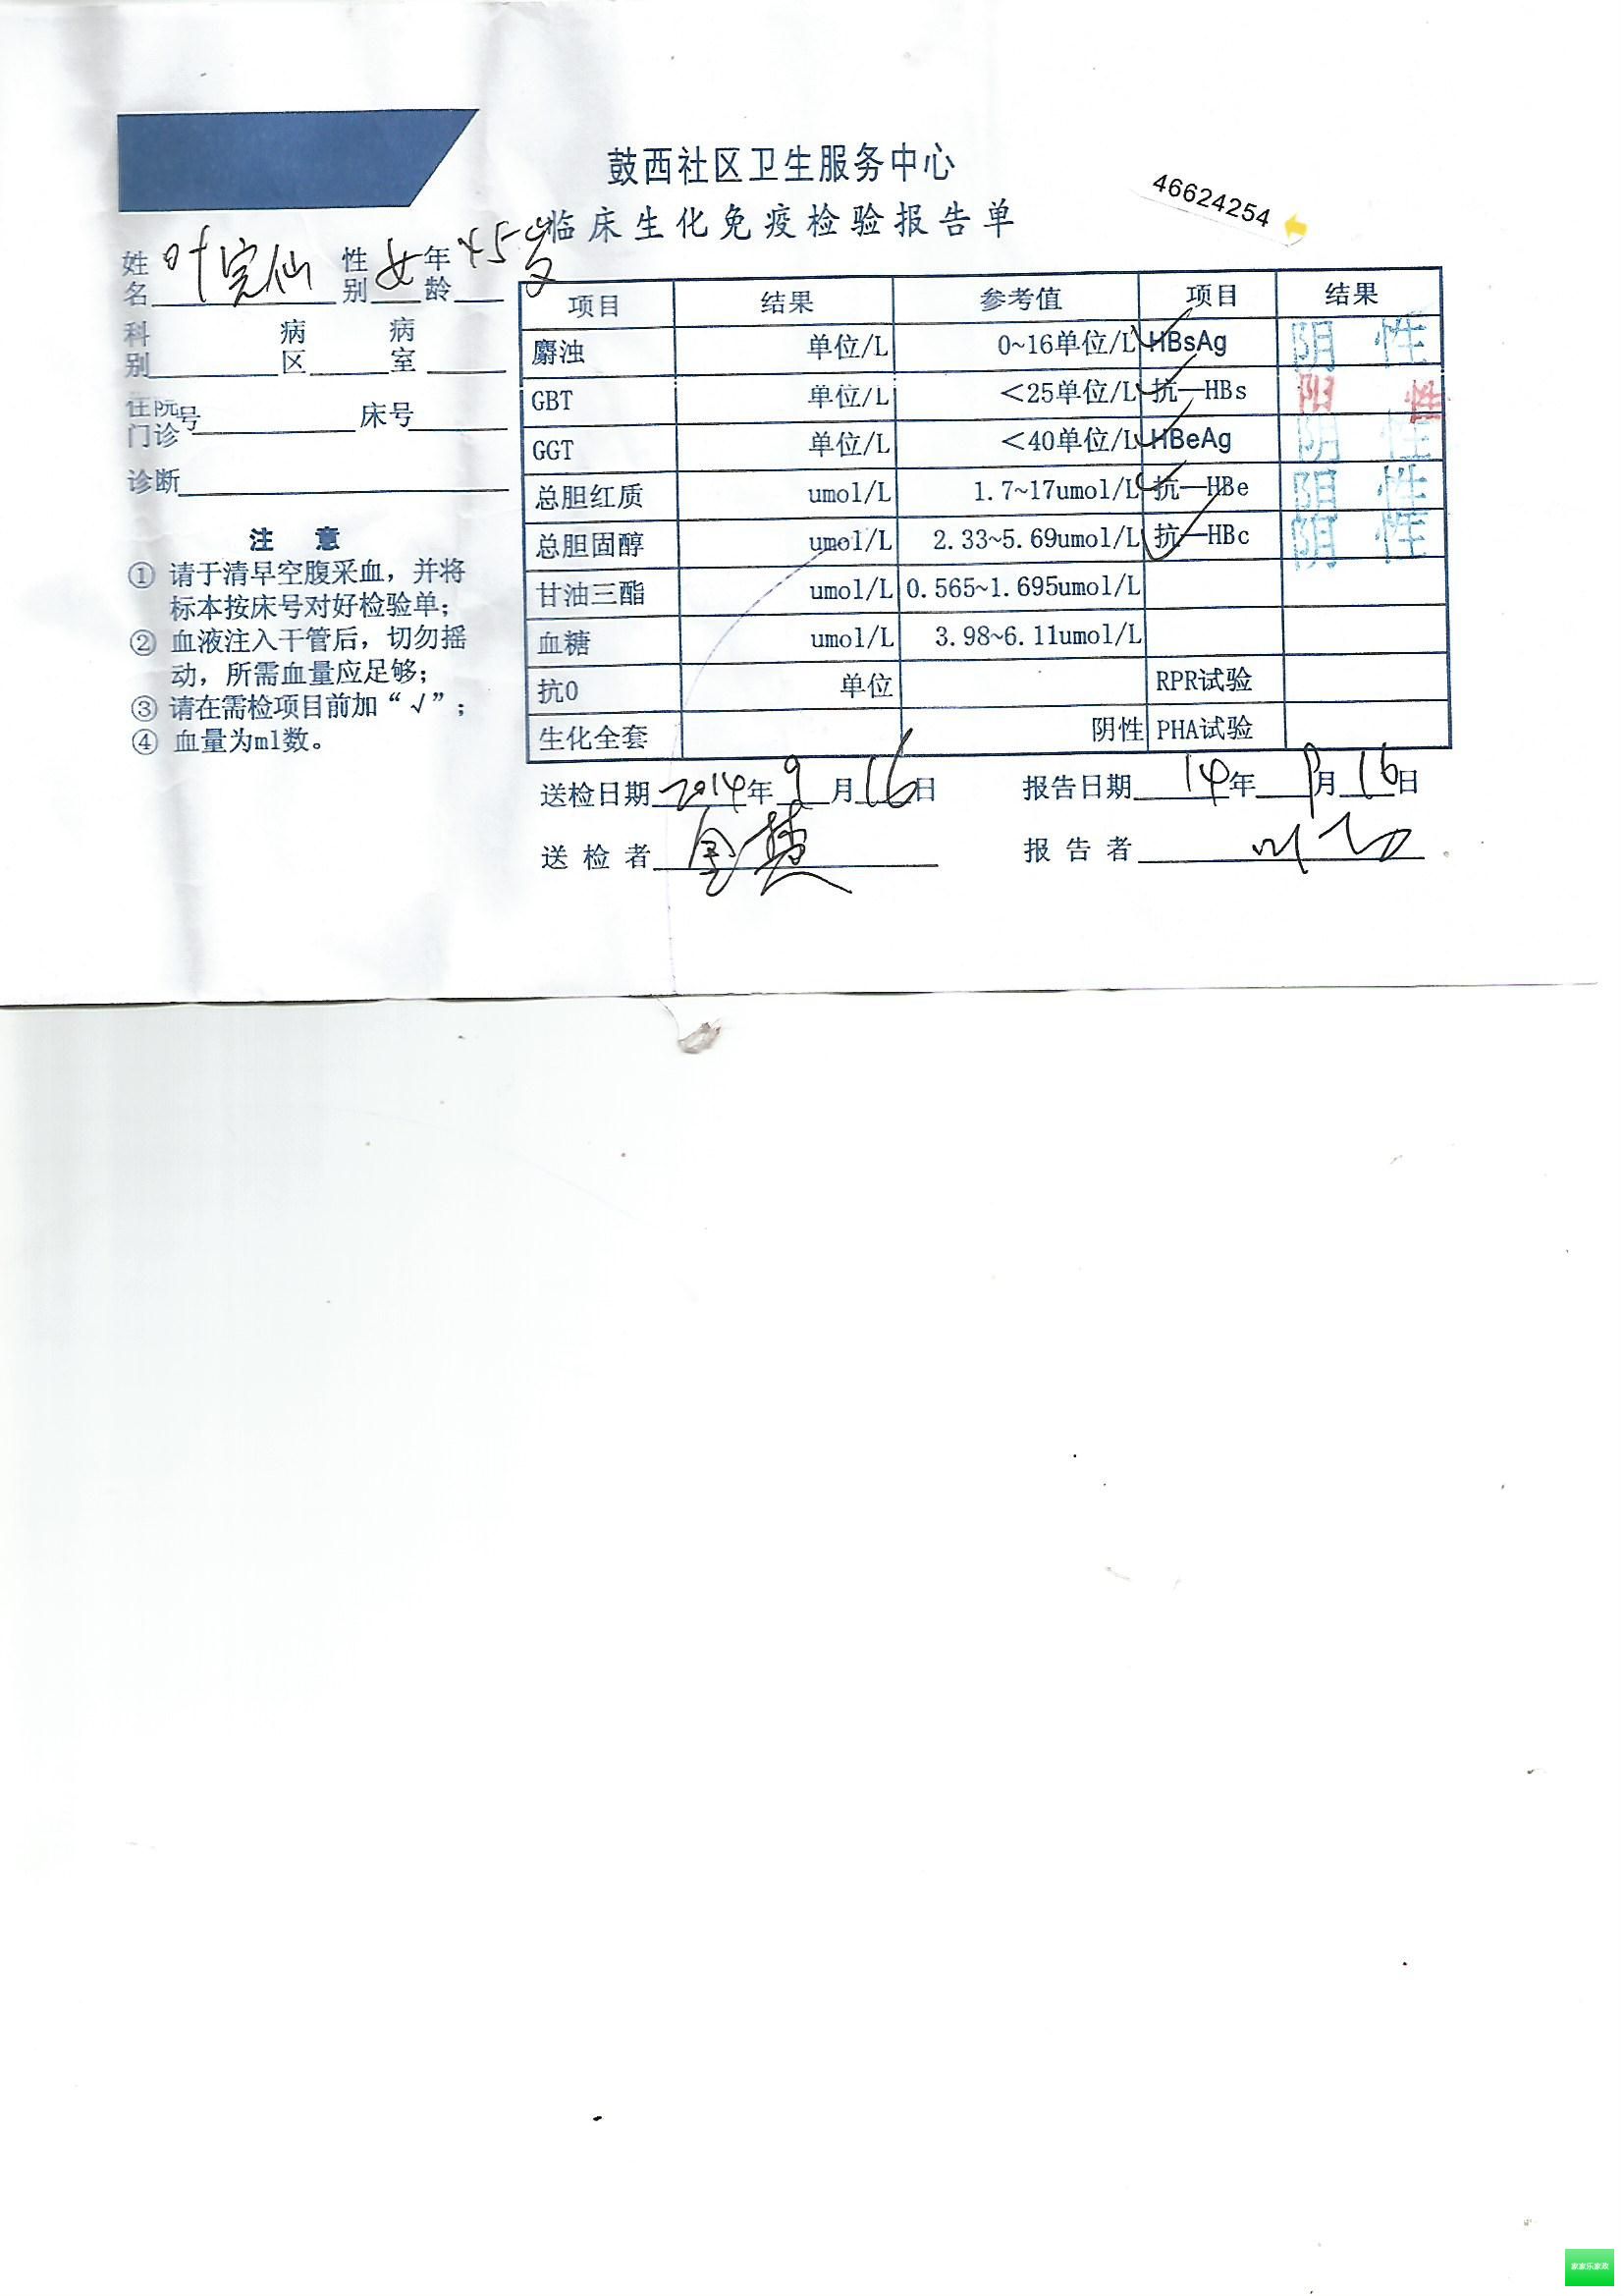 鼓西社区卫生服务中心
临床生化免疫检验报告单
46624254
姓名 叶完仙 性别 女 年龄 45岁
科别 病区 病室
住院门诊号 床号
诊断
注 意
① 请于清早空腹采血，并将
标本按床号对好检验单；
② 血液注入干管后，切勿摇
动，所需血量应足够；
③ 请在需检项目前加“√”；
④ 血量为ml数。
项目 结果 参考值 项目 结果
麝浊 单位/L 0~16单位/L √ HBsAg 阴 性
GBT 单位/L <25单位/L √ 抗—HBs 阳 性
GGT 单位/L <40单位/L √ HBeAg 阴 性
总胆红质 umol/L 1.7~17umol/L √ 抗—HBe 阴 性
总胆固醇 umol/L 2.33~5.69umol/L √ 抗—HBc 阴 性
甘油三酯 umol/L 0.565~1.695umol/L
血糖 umol/L 3.98~6.11umol/L
抗O 单位 RPR试验
生化全套 阴性 PHA试验
送检日期 2014年 9月 16日 报告日期 14年 9月 16日
送 检 者 报 告 者
家家乐家政